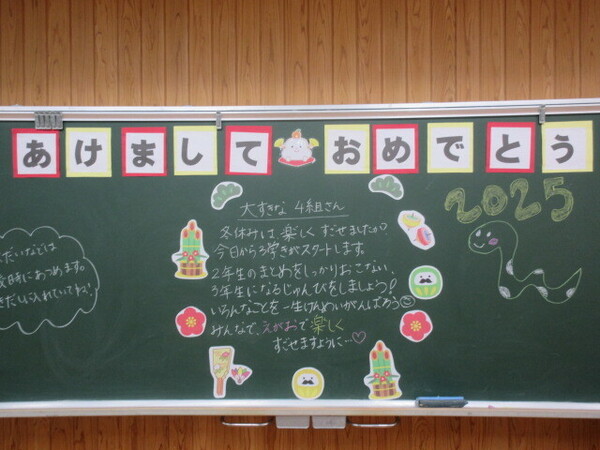 あけましておめでとう
2025
大すきな 4組さん
冬休みは 楽しく すごせましたか?
今日から3学きがスタートします。
2年生のまとめをしっかりおこない、
3年生になるじゅんびをしましょう!
いろんなことを一生けんめいがんばろう
みんなで、えがおで楽しく
すごせますように…♡
だいなどは
時にあつめます。
きだしに入れていてね!